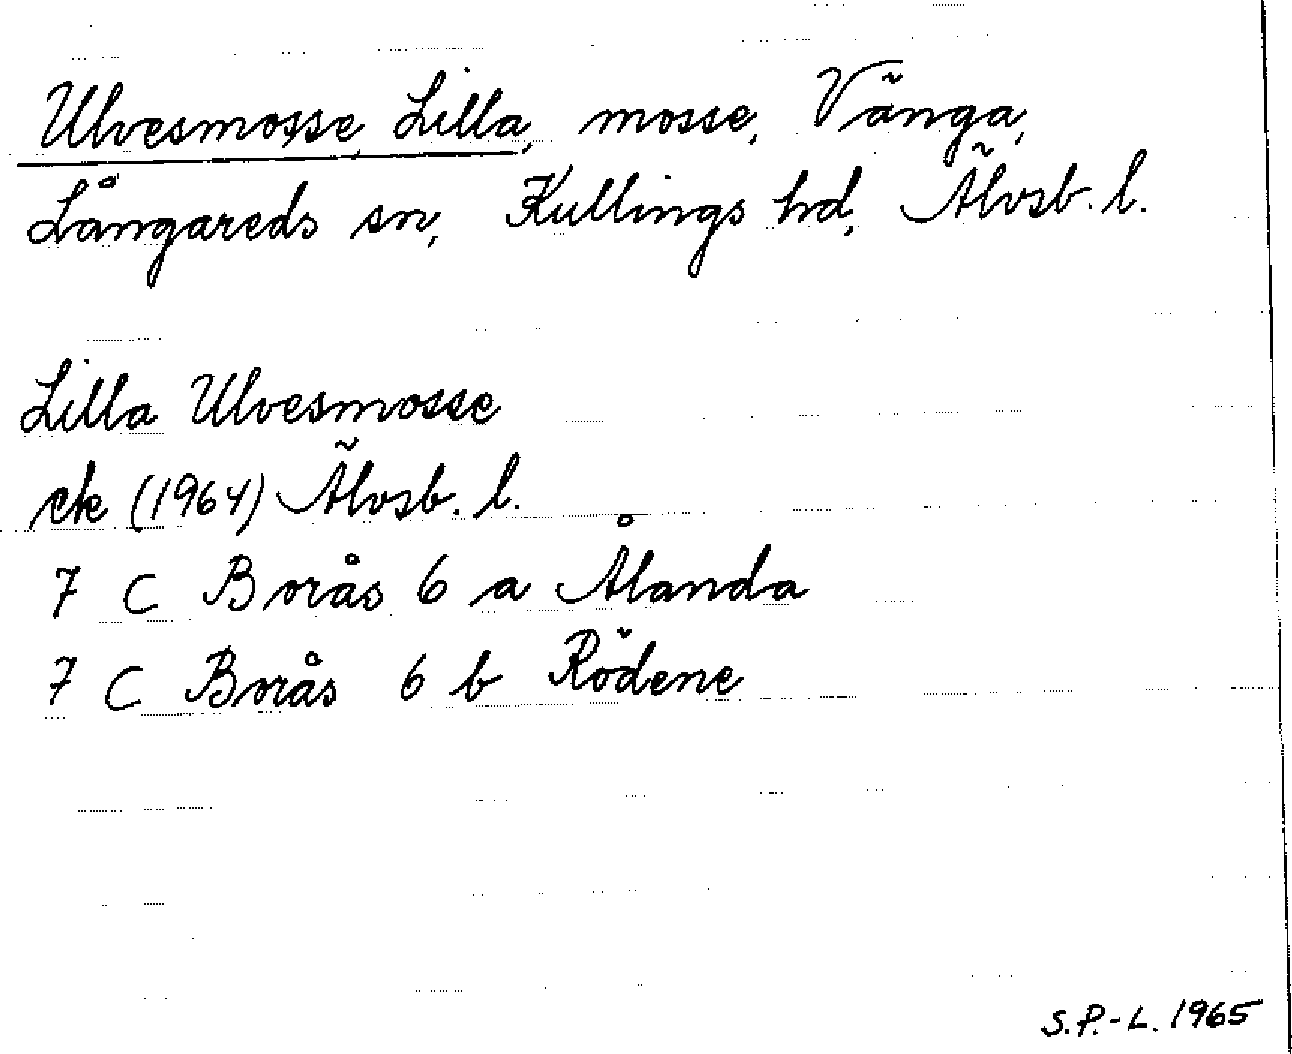 Ulvesmosse, Lilla, mosse, Vänga,
Långareds sn, Kullings hd, Älvsb. l.
Lilla Ulvesmosse
ek (1964) Älvsb. l.
7 C Borås 6 a Ålanda
7 C Borås 6 b Rödene
S.P.-L. 1965